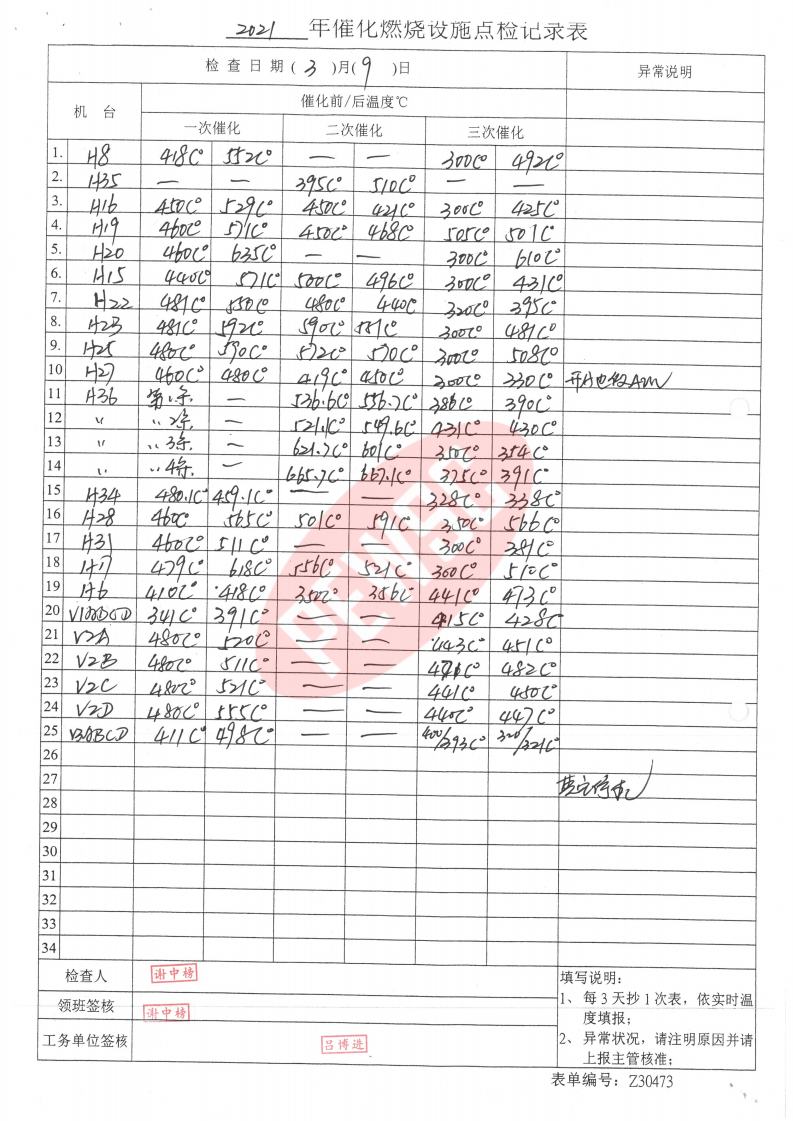 2021 年催化燃烧设施点检记录表
检查日期(3)月(9)日 异常说明
机 台 催化前/后温度℃
一次催化 二次催化 三次催化
1. H8 418C° 552C° — — 300C° 492C°
2. H35 — — 395C° 510C° — —
3. H16 450C° 529C° 450C° 421C° 300C° 425C°
4. H19 460C° 571C° 450C° 468C° 505C° 501C°
5. H20 460C° 635C° — — 300C° 610C°
6. H15 440C° 571C° 500C° 496C° 300C° 431C°
7. H22 481C° 550C° 480C° 440C° 320C° 395C°
8. H23 481C° 592C° 590C° 551C° 300C° 481C°
9. H25 480C° 590C° 572C° 570C° 300C° 508C°
10 H27 460C° 480C° 419C° 450C° 300C° 330C°
11 H36 第1条 — 536.6C° 556.7C° 386C° 390C°
12 〃 〃2条 — 521.1C° 549.6C° 431C° 430C°
13 〃 〃3条 — 621.7C° 601C° 350C° 354C°
14 〃 〃4条 — 665.7C° 667.1C° 375C° 391C°
15 H34 480.1C° 459.1C° — — 328C° 338C°
16 H28 460C° 565C° 501C° 591C° 350C° 566C°
17 H31 460C° 511C° — — 300C° 381C°
18 H17 479C° 618C° 556C° 521C° 300C° 510C°
19 H6 410C° 418C° 350C° 356C° 441C° 473C°
20 V1ABCD 341C° 391C° — — 415C° 428C°
21 V2A 480C° 520C° — — 443C° 451C°
22 V2B 480C° 511C° — — 482C°
23 V2C 480C° 521C° — — 441C° 450C°
24 V2D 480C° 555C° — — 440C° 447C°
25 V3ABCD 411C° 498C° — — 400/393C° 320/321C°
26
27
28
29
30
31
32
33
34
PEWSC
检查人 谢中榜
领班签核 谢中榜
工务单位签核 吕博进
填写说明:
1、每3天抄1次表，依实时温
度填报;
2、异常状况，请注明原因并请
上报主管核准;
表单编号: Z30473